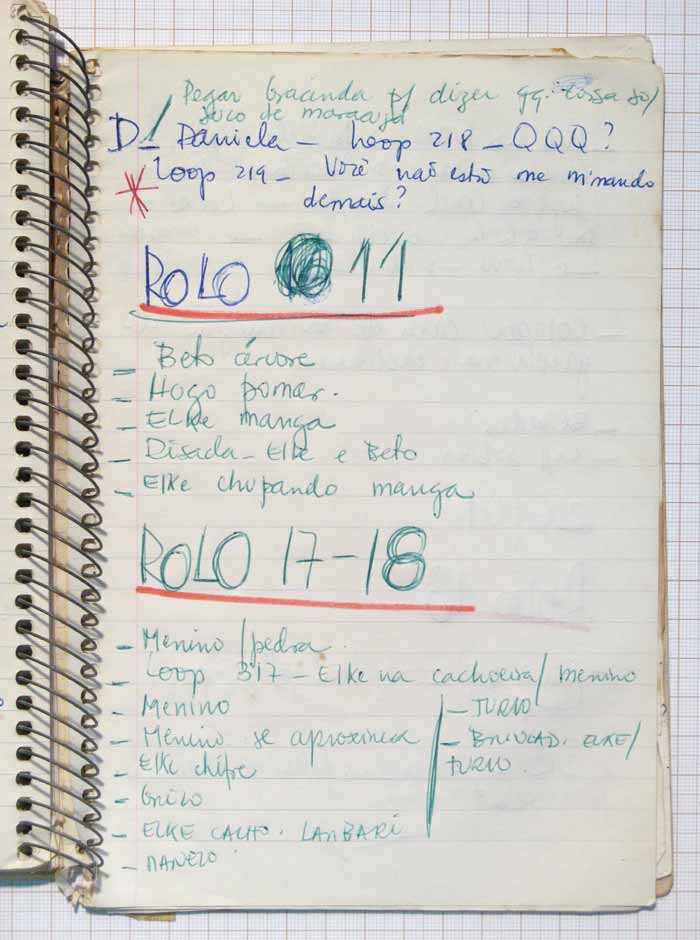 Pegar Gracinda p/ dizer qq. cossa so/
suco de maracujá
D - Daniela - Loop 218 - QQQ?
Loop 219 - Você não está me mimando
demais?
ROLO 11
- Beto árvore
- Hugo pomar.
- Elke manga
- Disada - Elke e Beto
- Elke chupando manga
ROLO 17-18
- Menino/pedra
- Loop 317 - Elke na cachoeira/menino
- Menino
- Menino se aproxima
- Elke chife
- Grilo
- ELKE CACHO. LAMBARI
- MANEZO
- TURVO
- BRINCAD. ELKE/
TURVO.